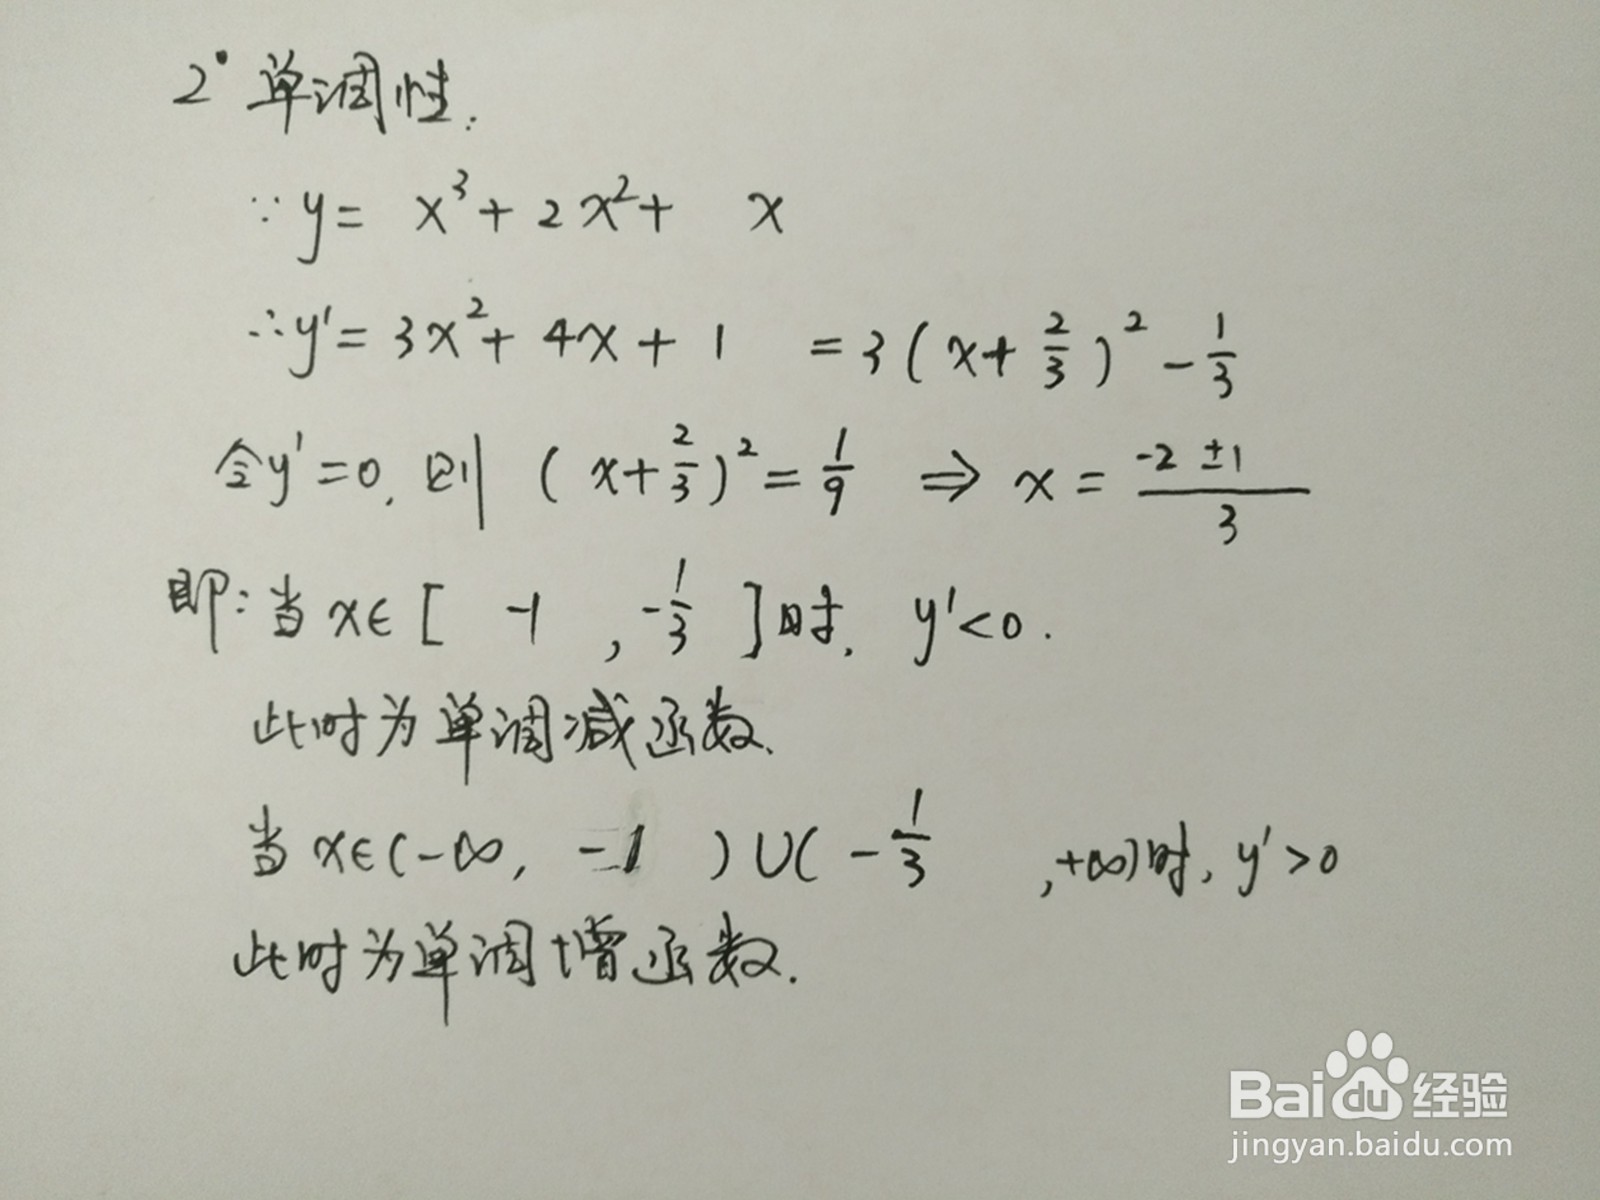 2° 单调性:
∵ y = x³ + 2x² + x
∴ y' = 3x² + 4x + 1 = 3(x + 2/3)² - 1/3
令y' = 0, 则 (x + 2/3)² = 1/9 ⇒ x = (-2 ± 1)/3
即: 当 x∈[ -1 , -1/3 ]时, y' < 0.
此时为单调减函数.
当 x∈(-∞, -1 )∪( -1/3 , +∞)时, y' > 0
此时为单调增函数.
Bai du 经验
jingyan.baidu.com